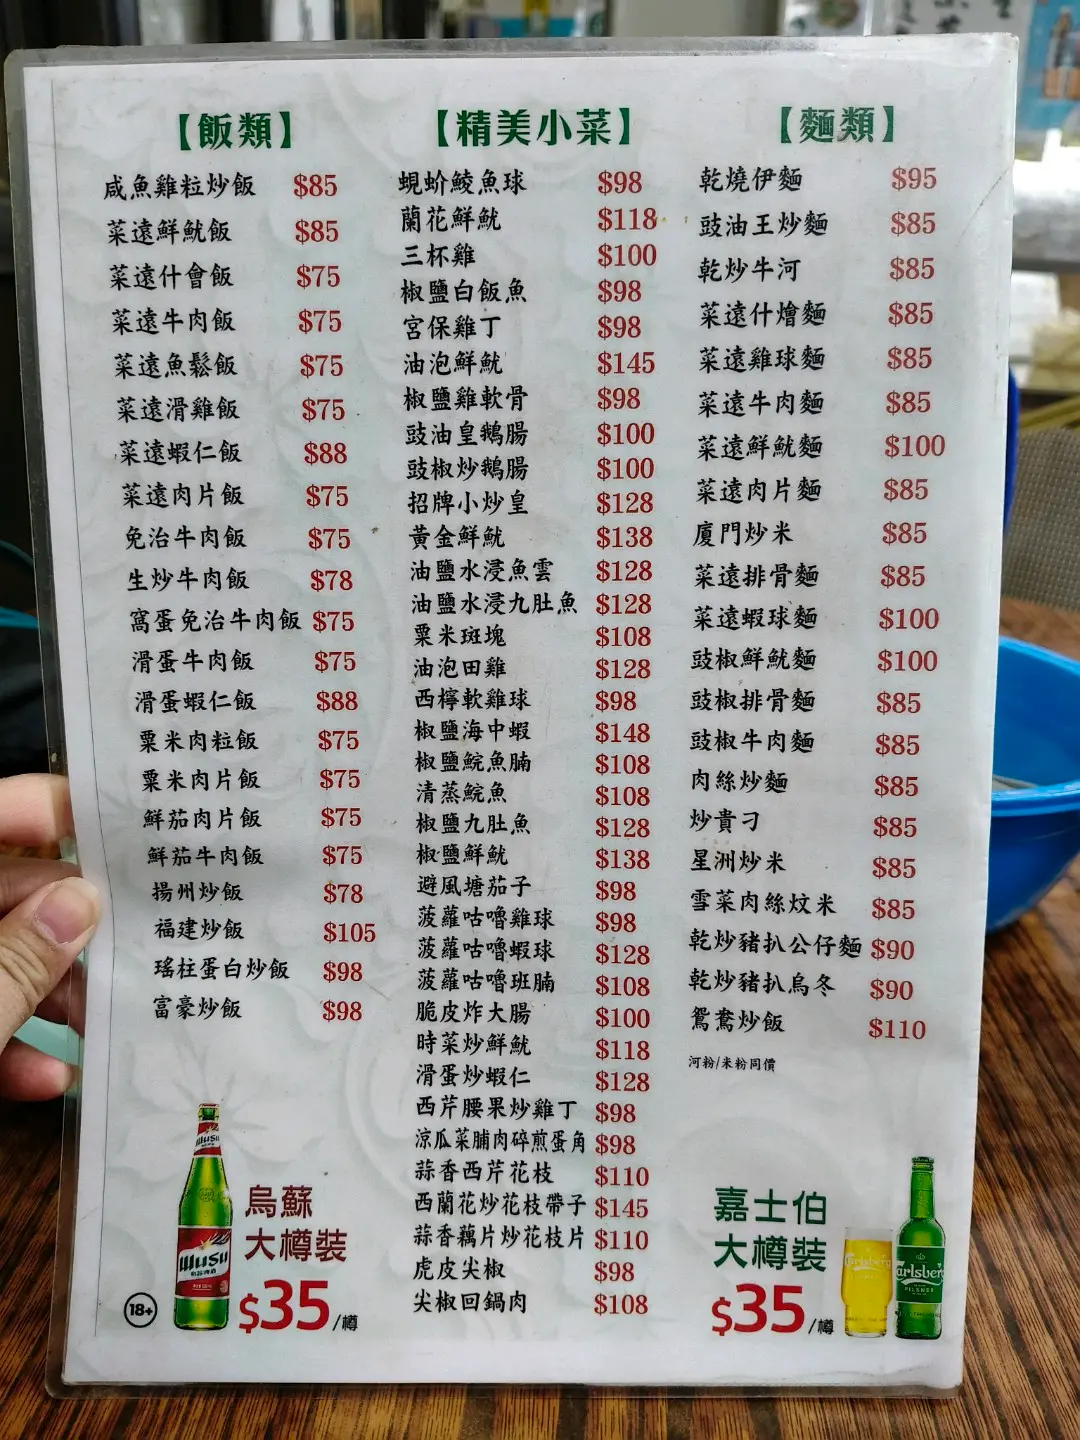 【飯類】
咸魚雞粒炒飯 $85
菜遠鮮魷飯 $85
菜遠什會飯 $75
菜遠牛肉飯 $75
菜遠魚鬆飯 $75
菜遠滑雞飯 $75
菜遠蝦仁飯 $88
菜遠肉片飯 $75
免治牛肉飯 $75
生炒牛肉飯 $78
窩蛋免治牛肉飯 $75
滑蛋牛肉飯 $75
滑蛋蝦仁飯 $88
粟米肉粒飯 $75
粟米肉片飯 $75
鮮茄肉片飯 $75
鮮茄牛肉飯 $75
揚州炒飯 $78
福建炒飯 $105
瑤柱蛋白炒飯 $98
富豪炒飯 $98
【精美小菜】
蜆蚧鯪魚球 $98
蘭花鮮魷 $118
三杯雞 $100
椒鹽白飯魚 $98
宮保雞丁 $98
油泡鮮魷 $145
椒鹽雞軟骨 $98
豉油皇鵝腸 $100
豉椒炒鵝腸 $100
招牌小炒皇 $128
黃金鮮魷 $138
油鹽水浸魚雲 $128
油鹽水浸九肚魚 $128
粟米斑塊 $108
油泡田雞 $128
西檸軟雞球 $98
椒鹽海中蝦 $148
椒鹽鯇魚腩 $108
清蒸鯇魚 $108
椒鹽九肚魚 $128
椒鹽鮮魷 $138
避風塘茄子 $98
菠蘿咕嚕雞球 $98
菠蘿咕嚕蝦球 $128
菠蘿咕嚕班腩 $108
脆皮炸大腸 $100
時菜炒鮮魷 $118
滑蛋炒蝦仁 $128
西芹腰果炒雞丁 $98
涼瓜菜脯肉碎煎蛋角 $98
蒜香西芹花枝 $110
西蘭花炒花枝帶子 $145
蒜香藕片炒花枝片 $110
虎皮尖椒 $98
尖椒回鍋肉 $108
【麵類】
乾燒伊麵 $95
豉油王炒麵 $85
乾炒牛河 $85
菜遠什燴麵 $85
菜遠雞球麵 $85
菜遠牛肉麵 $85
菜遠鮮魷麵 $100
菜遠肉片麵 $85
廈門炒米 $85
菜遠排骨麵 $85
菜遠蝦球麵 $100
豉椒鮮魷麵 $100
豉椒排骨麵 $85
豉椒牛肉麵 $85
肉絲炒麵 $85
炒貴刁 $85
星洲炒米 $85
雪菜肉絲炆米 $85
乾炒豬扒公仔麵 $90
乾炒豬扒烏冬 $90
鴛鴦炒飯 $110
河粉/米粉同價
烏蘇
大樽裝
$35/樽
18+
WUSU
嘉士伯
大樽裝
$35/樽
Carlsberg
PILSNER